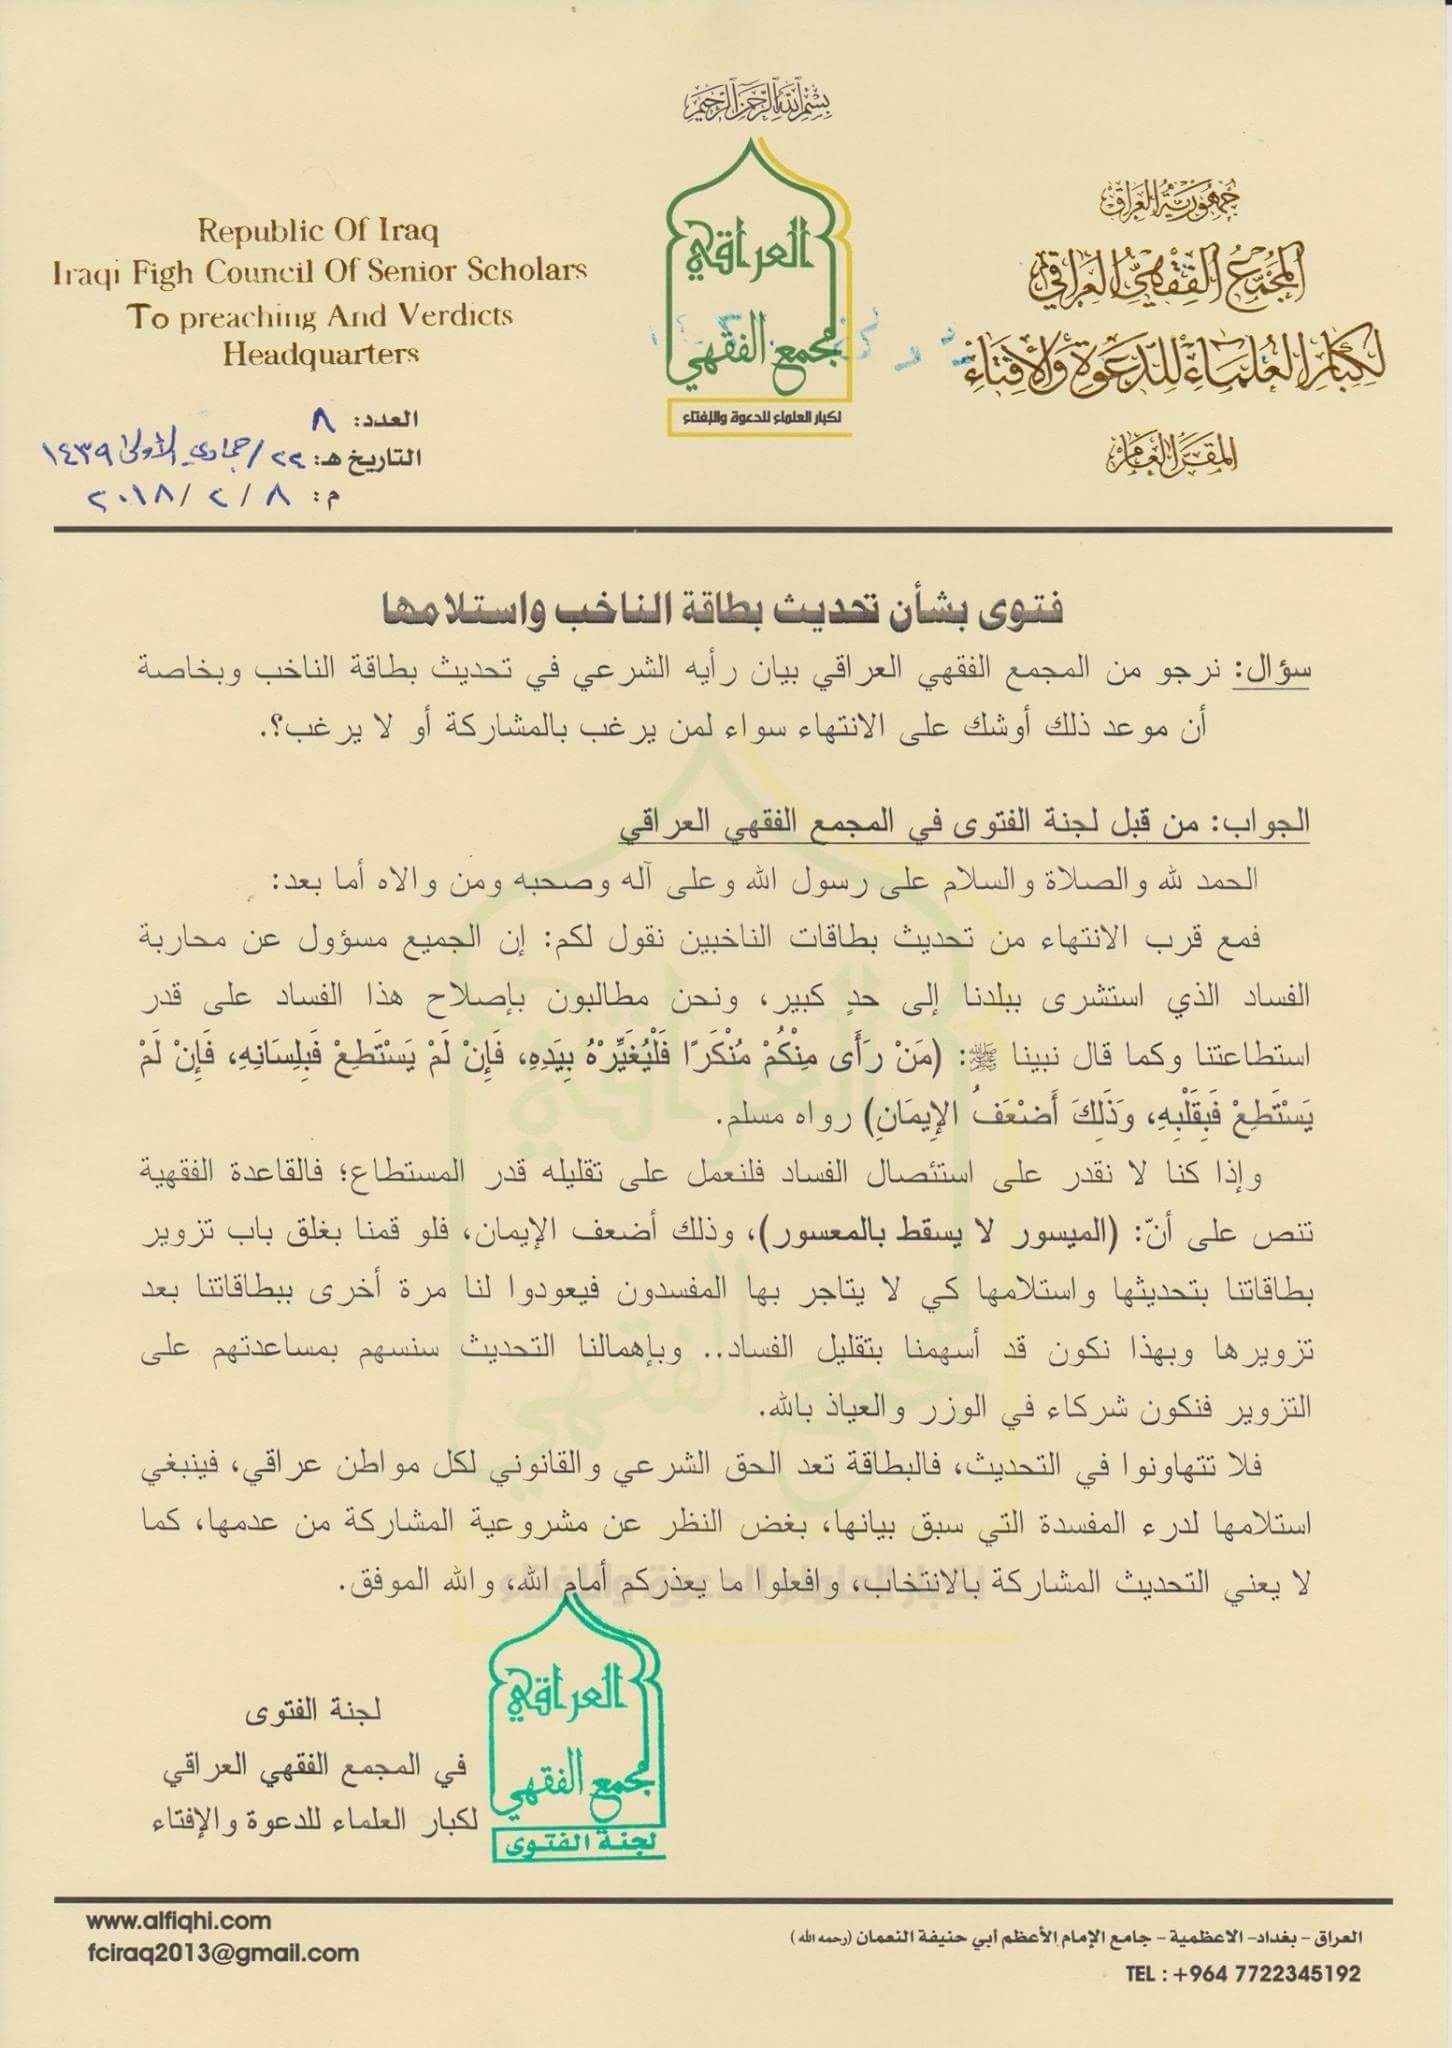 بسم الله الرحمن الرحيم
جمهورية العراق
المجمع الفقهي العراقي
لكبار العلماء للدعوة والافتاء
المقر العام
العراقي
مجمع الفقهي
لكبار العلماء للدعوة والإفتاء
Republic Of Iraq
Iraqi Figh Council Of Senior Scholars
To preaching And Verdicts
Headquarters
العدد: ٨
التاريخ هـ: ٢٢/جمادي الأولى ١٤٣٩
م: ٨ / ٢ / ٢٠١٨
فتوى بشأن تحديث بطاقة الناخب واستلامها
سؤال: نرجو من المجمع الفقهي العراقي بيان رأيه الشرعي في تحديث بطاقة الناخب وبخاصة
أن موعد ذلك أوشك على الانتهاء سواء لمن يرغب بالمشاركة أو لا يرغب؟.
الجواب: من قبل لجنة الفتوى في المجمع الفقهي العراقي
الحمد لله والصلاة والسلام على رسول الله وعلى آله وصحبه ومن والاه أما بعد:
فمع قرب الانتهاء من تحديث بطاقات الناخبين نقول لكم: إن الجميع مسؤول عن محاربة
الفساد الذي استشرى ببلدنا إلى حدٍ كبير، ونحن مطالبون بإصلاح هذا الفساد على قدر
استطاعتنا وكما قال نبينا ﷺ: (مَنْ رَأَى مِنْكُمْ مُنْكَرًا فَلْيُغَيِّرْهُ بِيَدِهِ، فَإِنْ لَمْ يَسْتَطِعْ فَبِلِسَانِهِ، فَإِنْ لَمْ
يَسْتَطِعْ فَبِقَلْبِهِ، وَذَلِكَ أَضْعَفُ الإِيمَانِ) رواه مسلم.
وإذا كنا لا نقدر على استئصال الفساد فلنعمل على تقليله قدر المستطاع؛ فالقاعدة الفقهية
تنص على أنّ: (الميسور لا يسقط بالمعسور)، وذلك أضعف الإيمان، فلو قمنا بغلق باب تزوير
بطاقاتنا بتحديثها واستلامها كي لا يتاجر بها المفسدون فيعودوا لنا مرة أخرى ببطاقاتنا بعد
تزويرها وبهذا نكون قد أسهمنا بتقليل الفساد.. وبإهمالنا التحديث سنسهم بمساعدتهم على
التزوير فنكون شركاء في الوزر والعياذ بالله.
فلا تتهاونوا في التحديث، فالبطاقة تعد الحق الشرعي والقانوني لكل مواطن عراقي، فينبغي
استلامها لدرء المفسدة التي سبق بيانها، بغض النظر عن مشروعية المشاركة من عدمها، كما
لا يعني التحديث المشاركة بالانتخاب، وافعلوا ما يعذركم أمام الله، والله الموفق.
العراقي
مجمع الفقهي
لجنة الفتوى
لجنة الفتوى
في المجمع الفقهي العراقي
لكبار العلماء للدعوة والإفتاء
العراق - بغداد- الاعظمية - جامع الإمام الأعظم أبي حنيفة النعمان (رحمه الله)
TEL : +964 7722345192
www.alfiqhi.com
fciraq2013@gmail.com